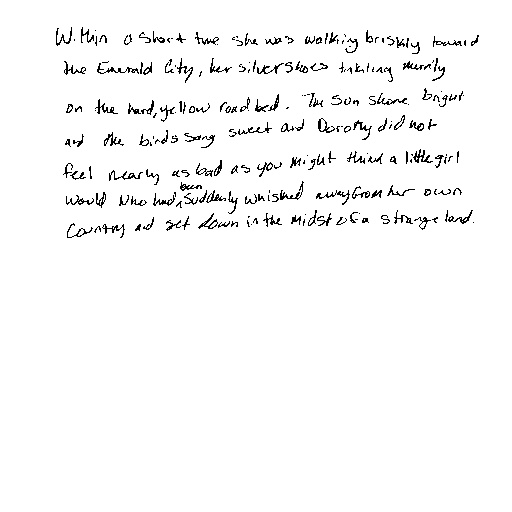 Within a short time she was walking briskly toward
the Emerald City, her silver shoes tinkling merrily
on the hard, yellow road bed. The sun shone bright
and the birds sang sweet and Dorothy did not
feel nearly as bad as you might think a little girl
would who had been suddenly whisked away from her own
country and set down in the midst of a strange land.